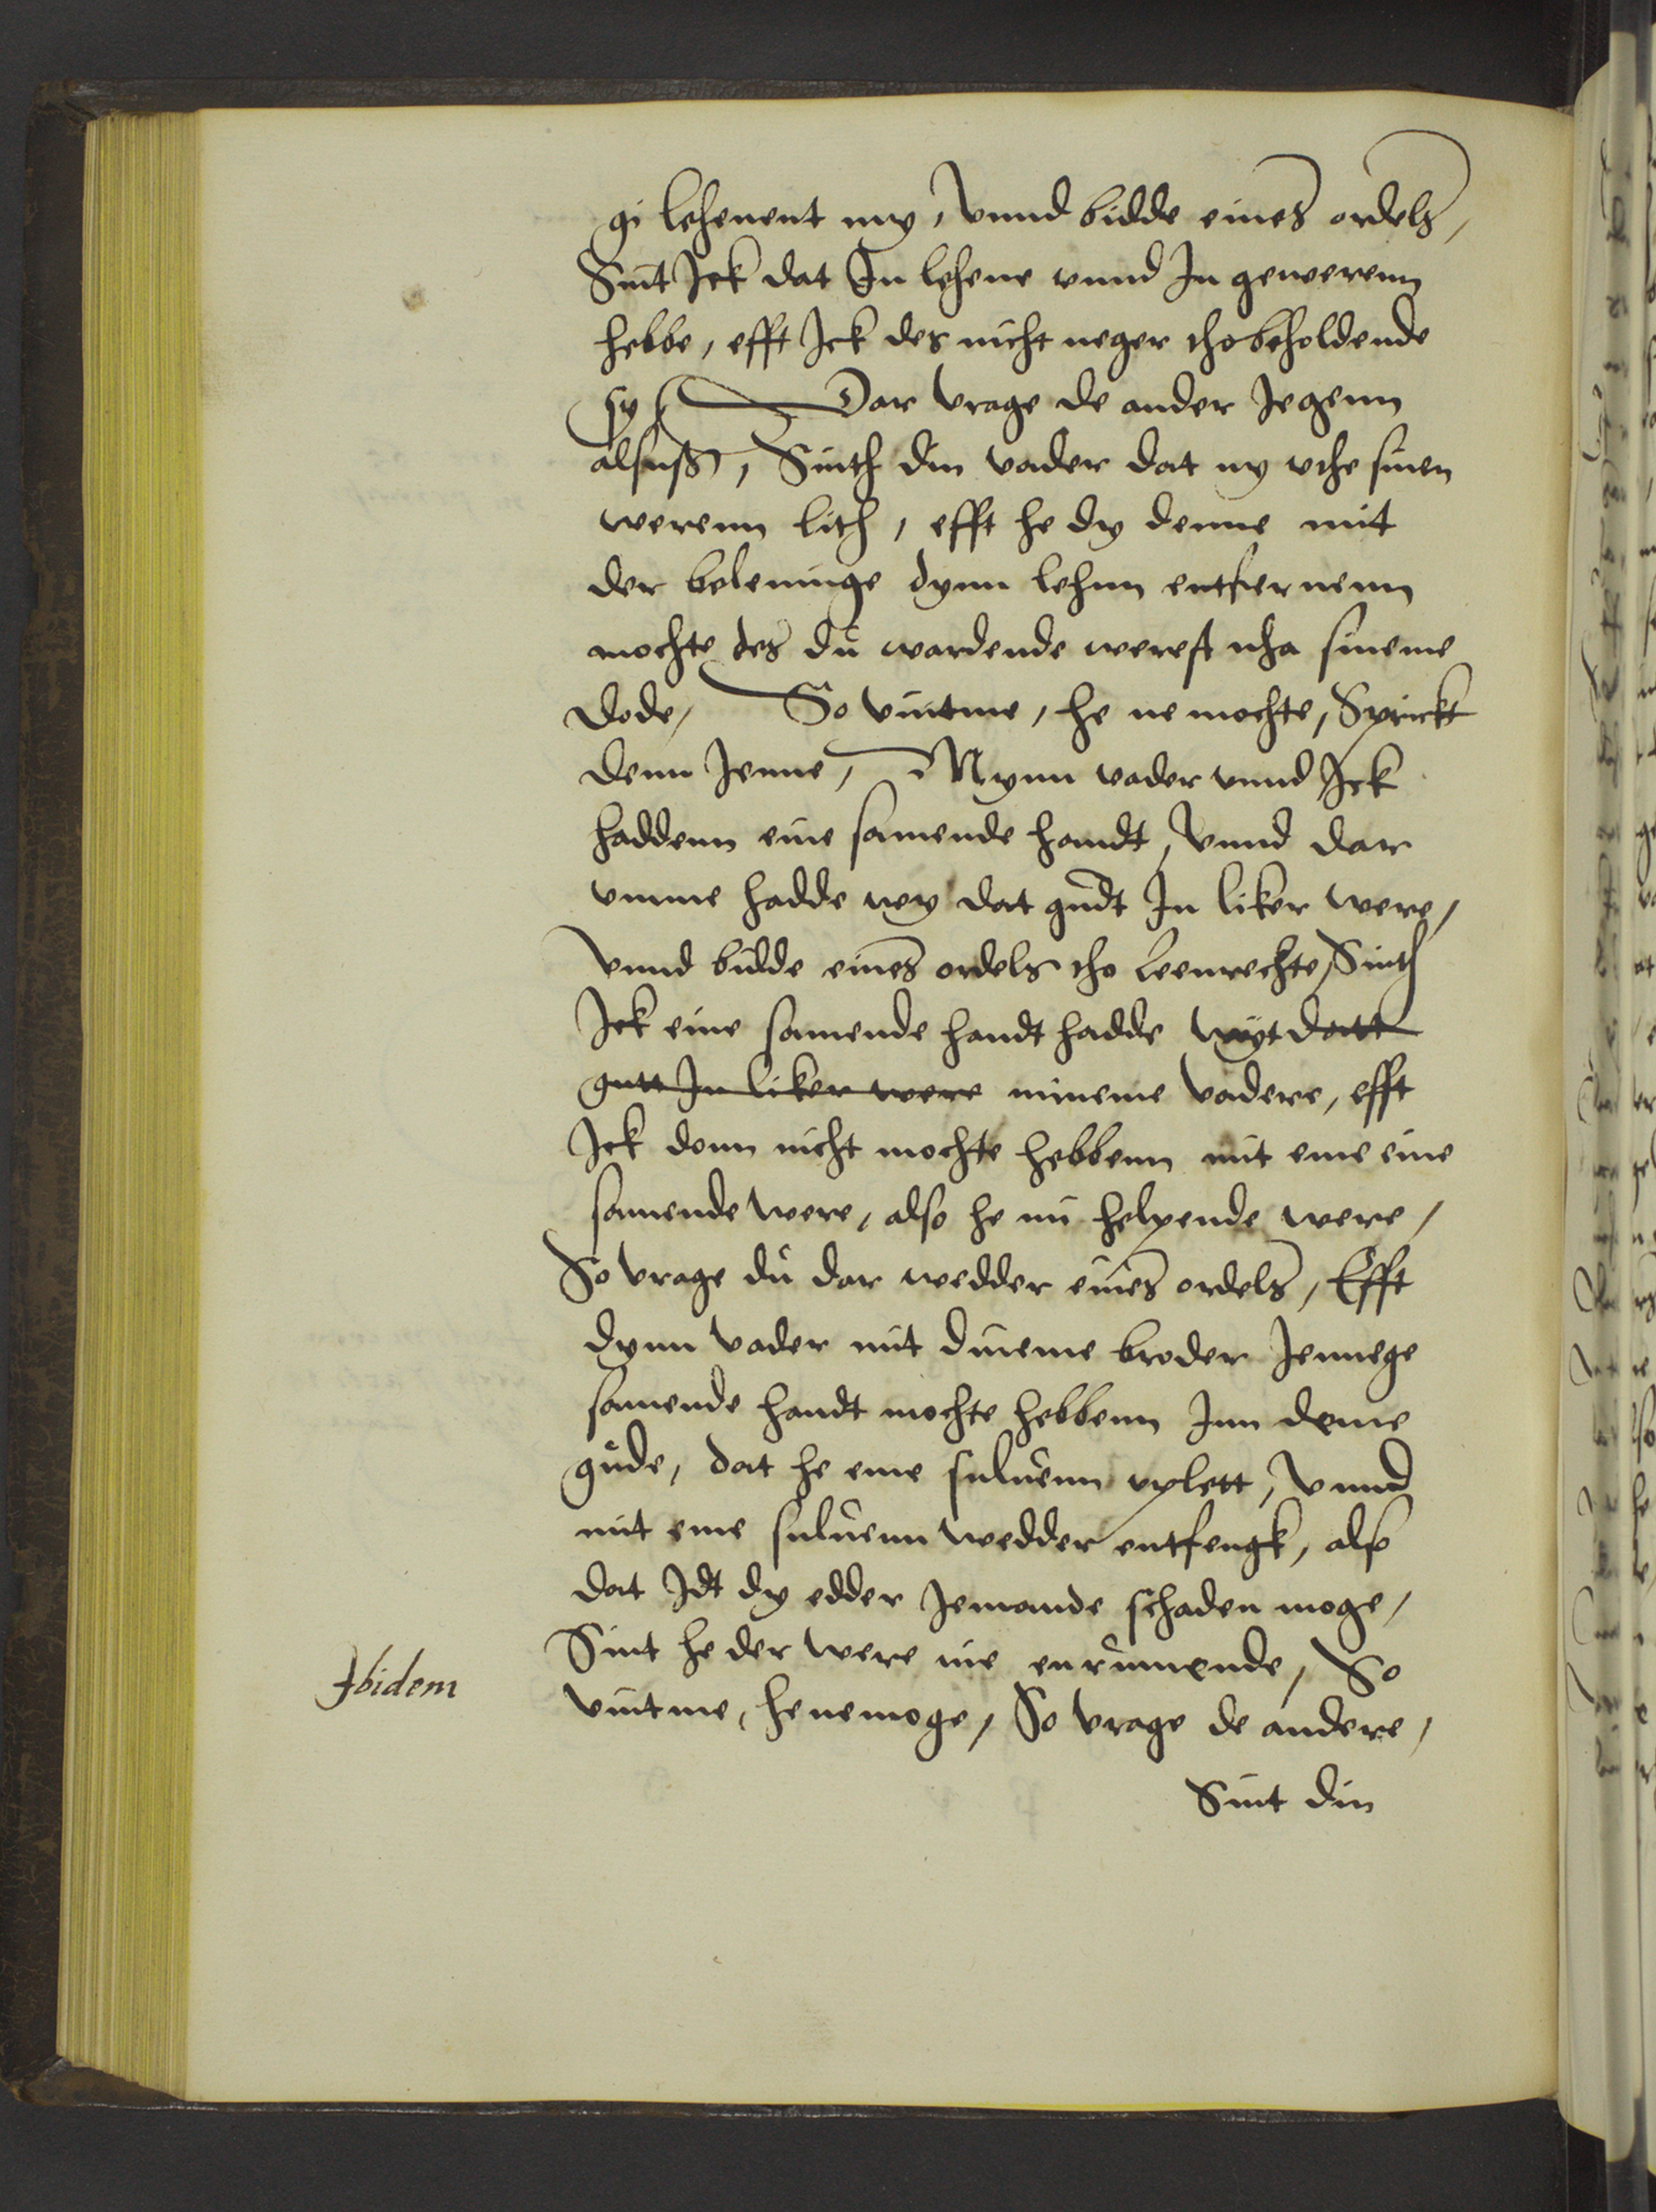 gi lehenent my, Vnnd bidde eines ordels,
Sint Ick dat In lehene vnnd In gewerenn
hebbe, efft Ick des nicht neger tho beholdende
sy Dar vrage de ander Jegenn
alsuß, Sinth din vader dat ny vthe sinen
werenn lith, efft he dy denne mit
der beleninge dynn lehnn entfernenn
mochte des du wardende werest nha sineme
dode, So vintme, he ne mochte, Sprickt
denn Jenne, Mynn vader vnnd Ick
haddenn eine samende handt, Vnnd dar
vmme hadde wy dat gudt In liker were,
Vnnd bidde eines ordels tho Leenrechte, Sinth
Ick eine samende handt hadde wyt datt
gutt In liker were mineme vadere, efft
Ick donn nicht mochte hebbenn mit eme eine
samende were, also he mi helpende were,
So vrage du dar wedder eines ordels, Efft
dynn vader mit dineme broder Jennege
samende handt mochte hebbenn Inn deme
gude, dat he eme suluenn vplett, Vnnd
mit eme suluenn wedder entfengk, also
dat Idt dy edder Jemande schaden moge,
Sint he der were nie enrumende, So
vintme, he ne moge, So vrage de andere,
Sint din
Ibidem